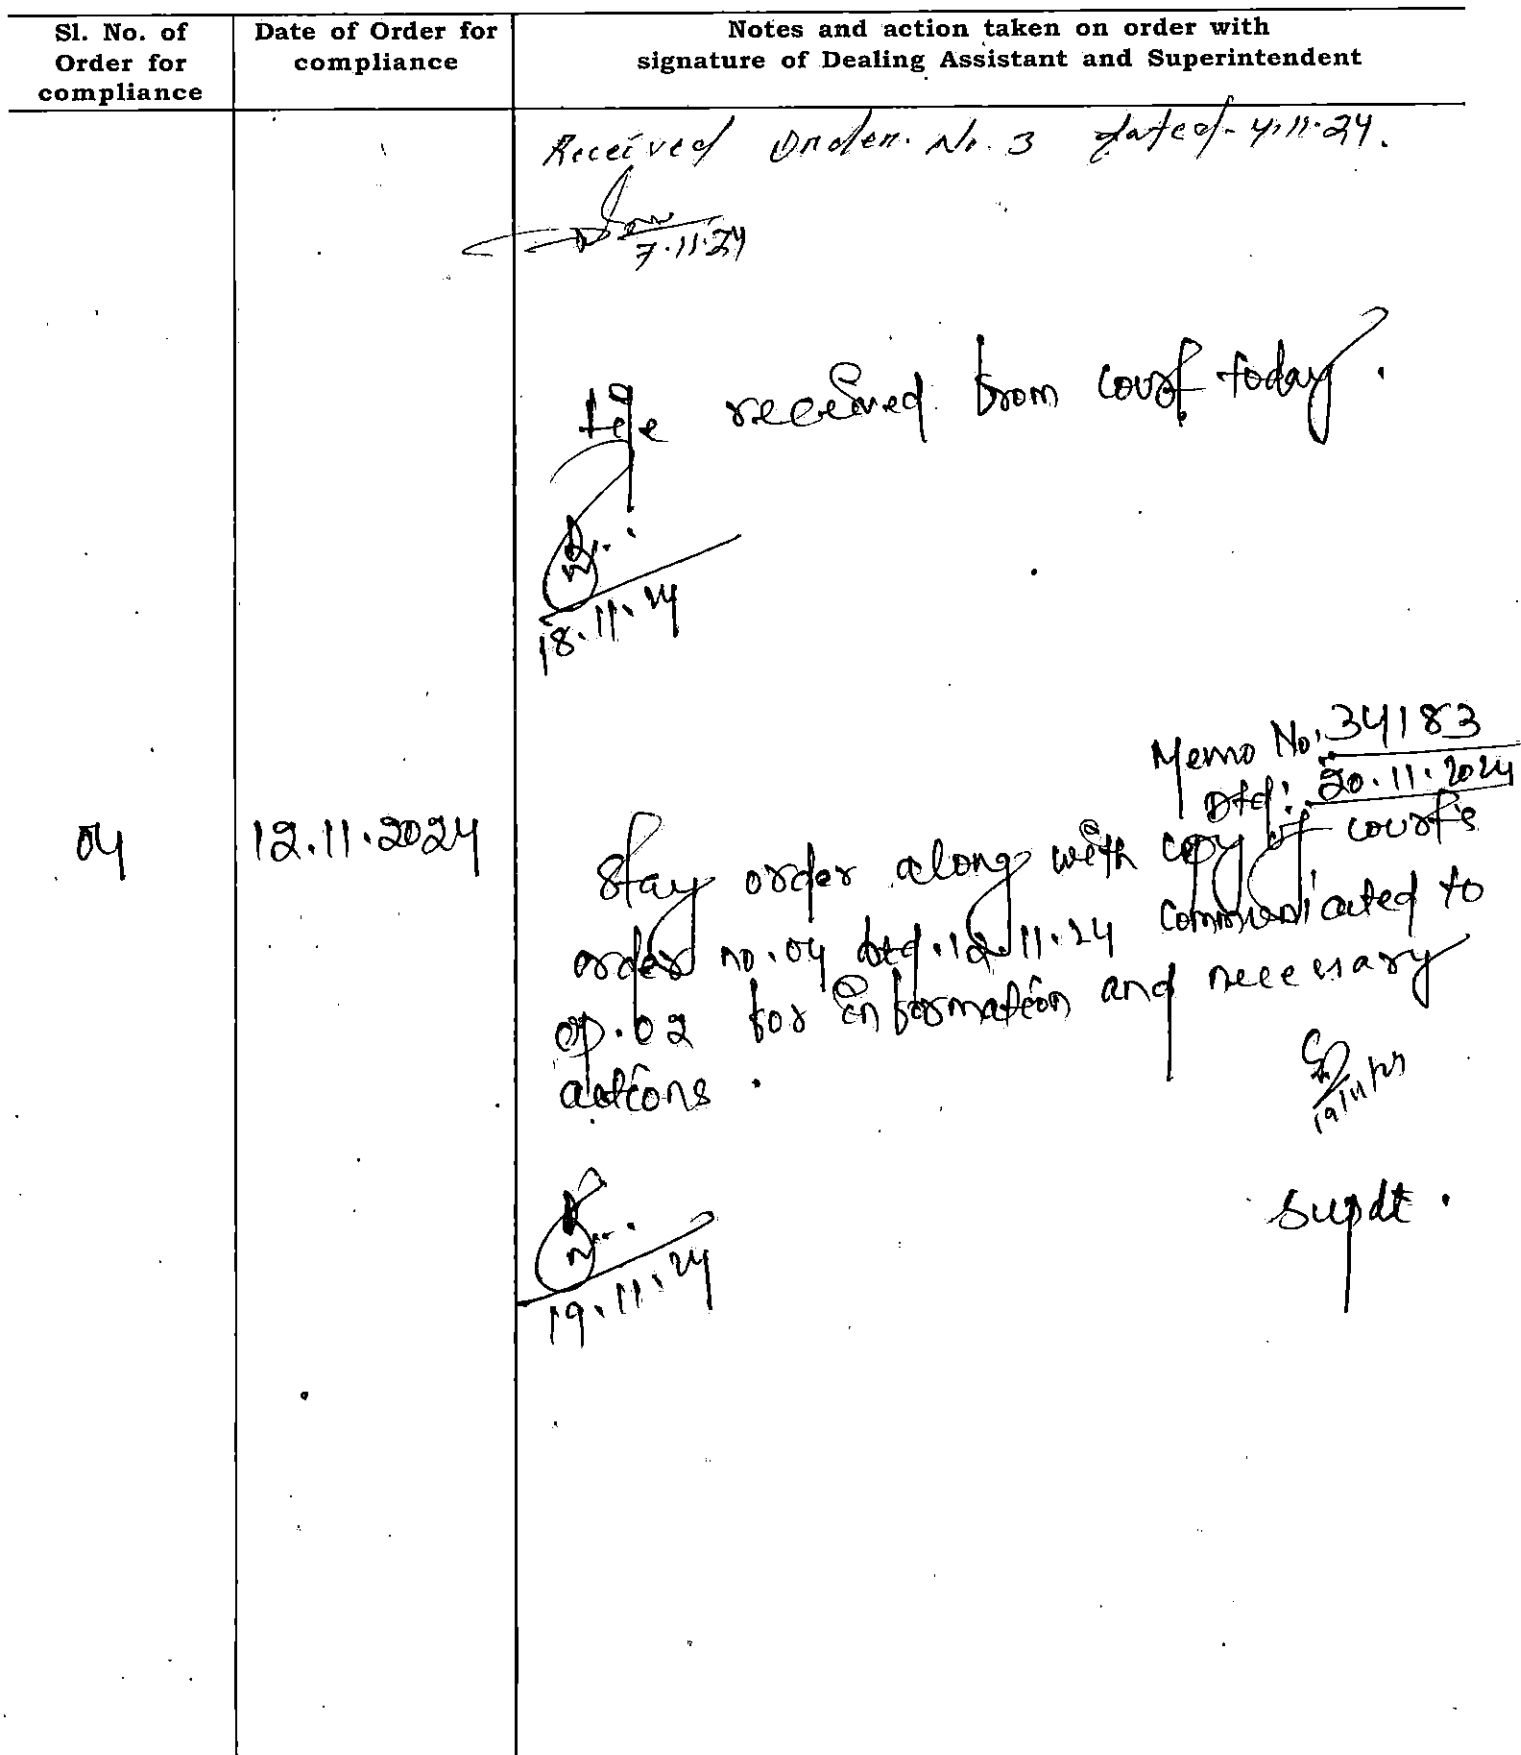 Sl. No. of Order for compliance
Date of Order for compliance
Notes and action taken on order with signature of Dealing Assistant and Superintendent
Received Order. No. 3 dated- 4.11.24.
7.11.24
File received from court today.
18.11.24
Memo No. 34183
Dtd: 20.11.2024
04 12.11.2024
Stay order along with copy of court's
order no. 04 dtd. 12.11.24 communicated to
op. 02 for information and necessary
actions.
19/11/24
Supdt.
19.11.24